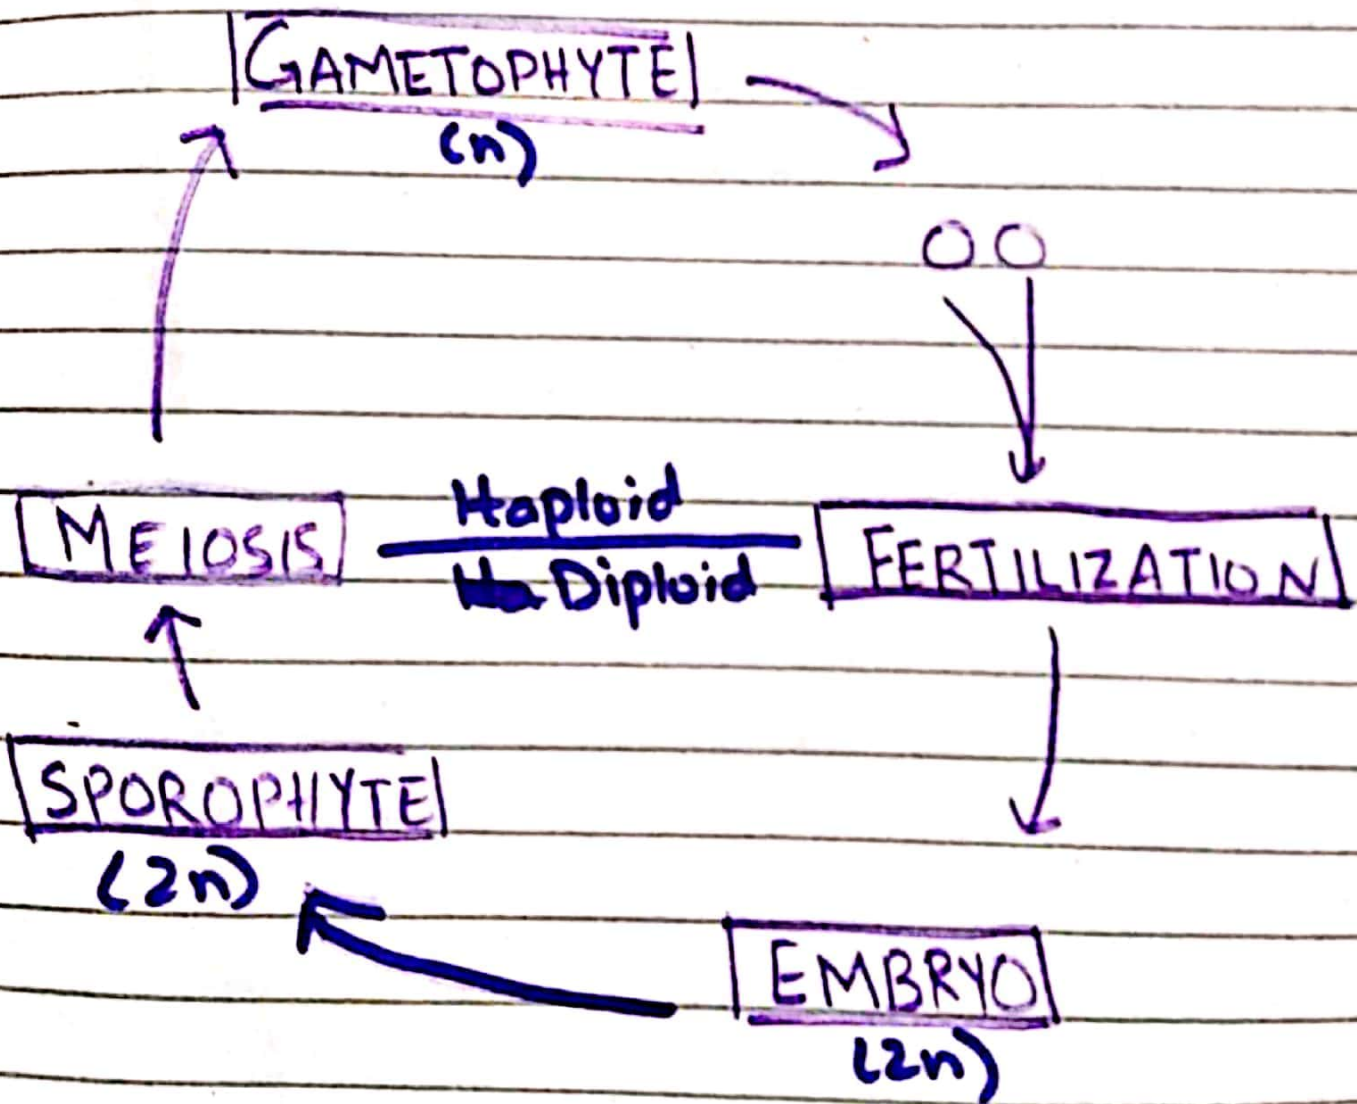 GAMETOPHYTE
(n)
OO
MEIOSIS
Haploid
Diploid
FERTILIZATION
SPOROPHYTE
(2n)
EMBRYO
(2n)